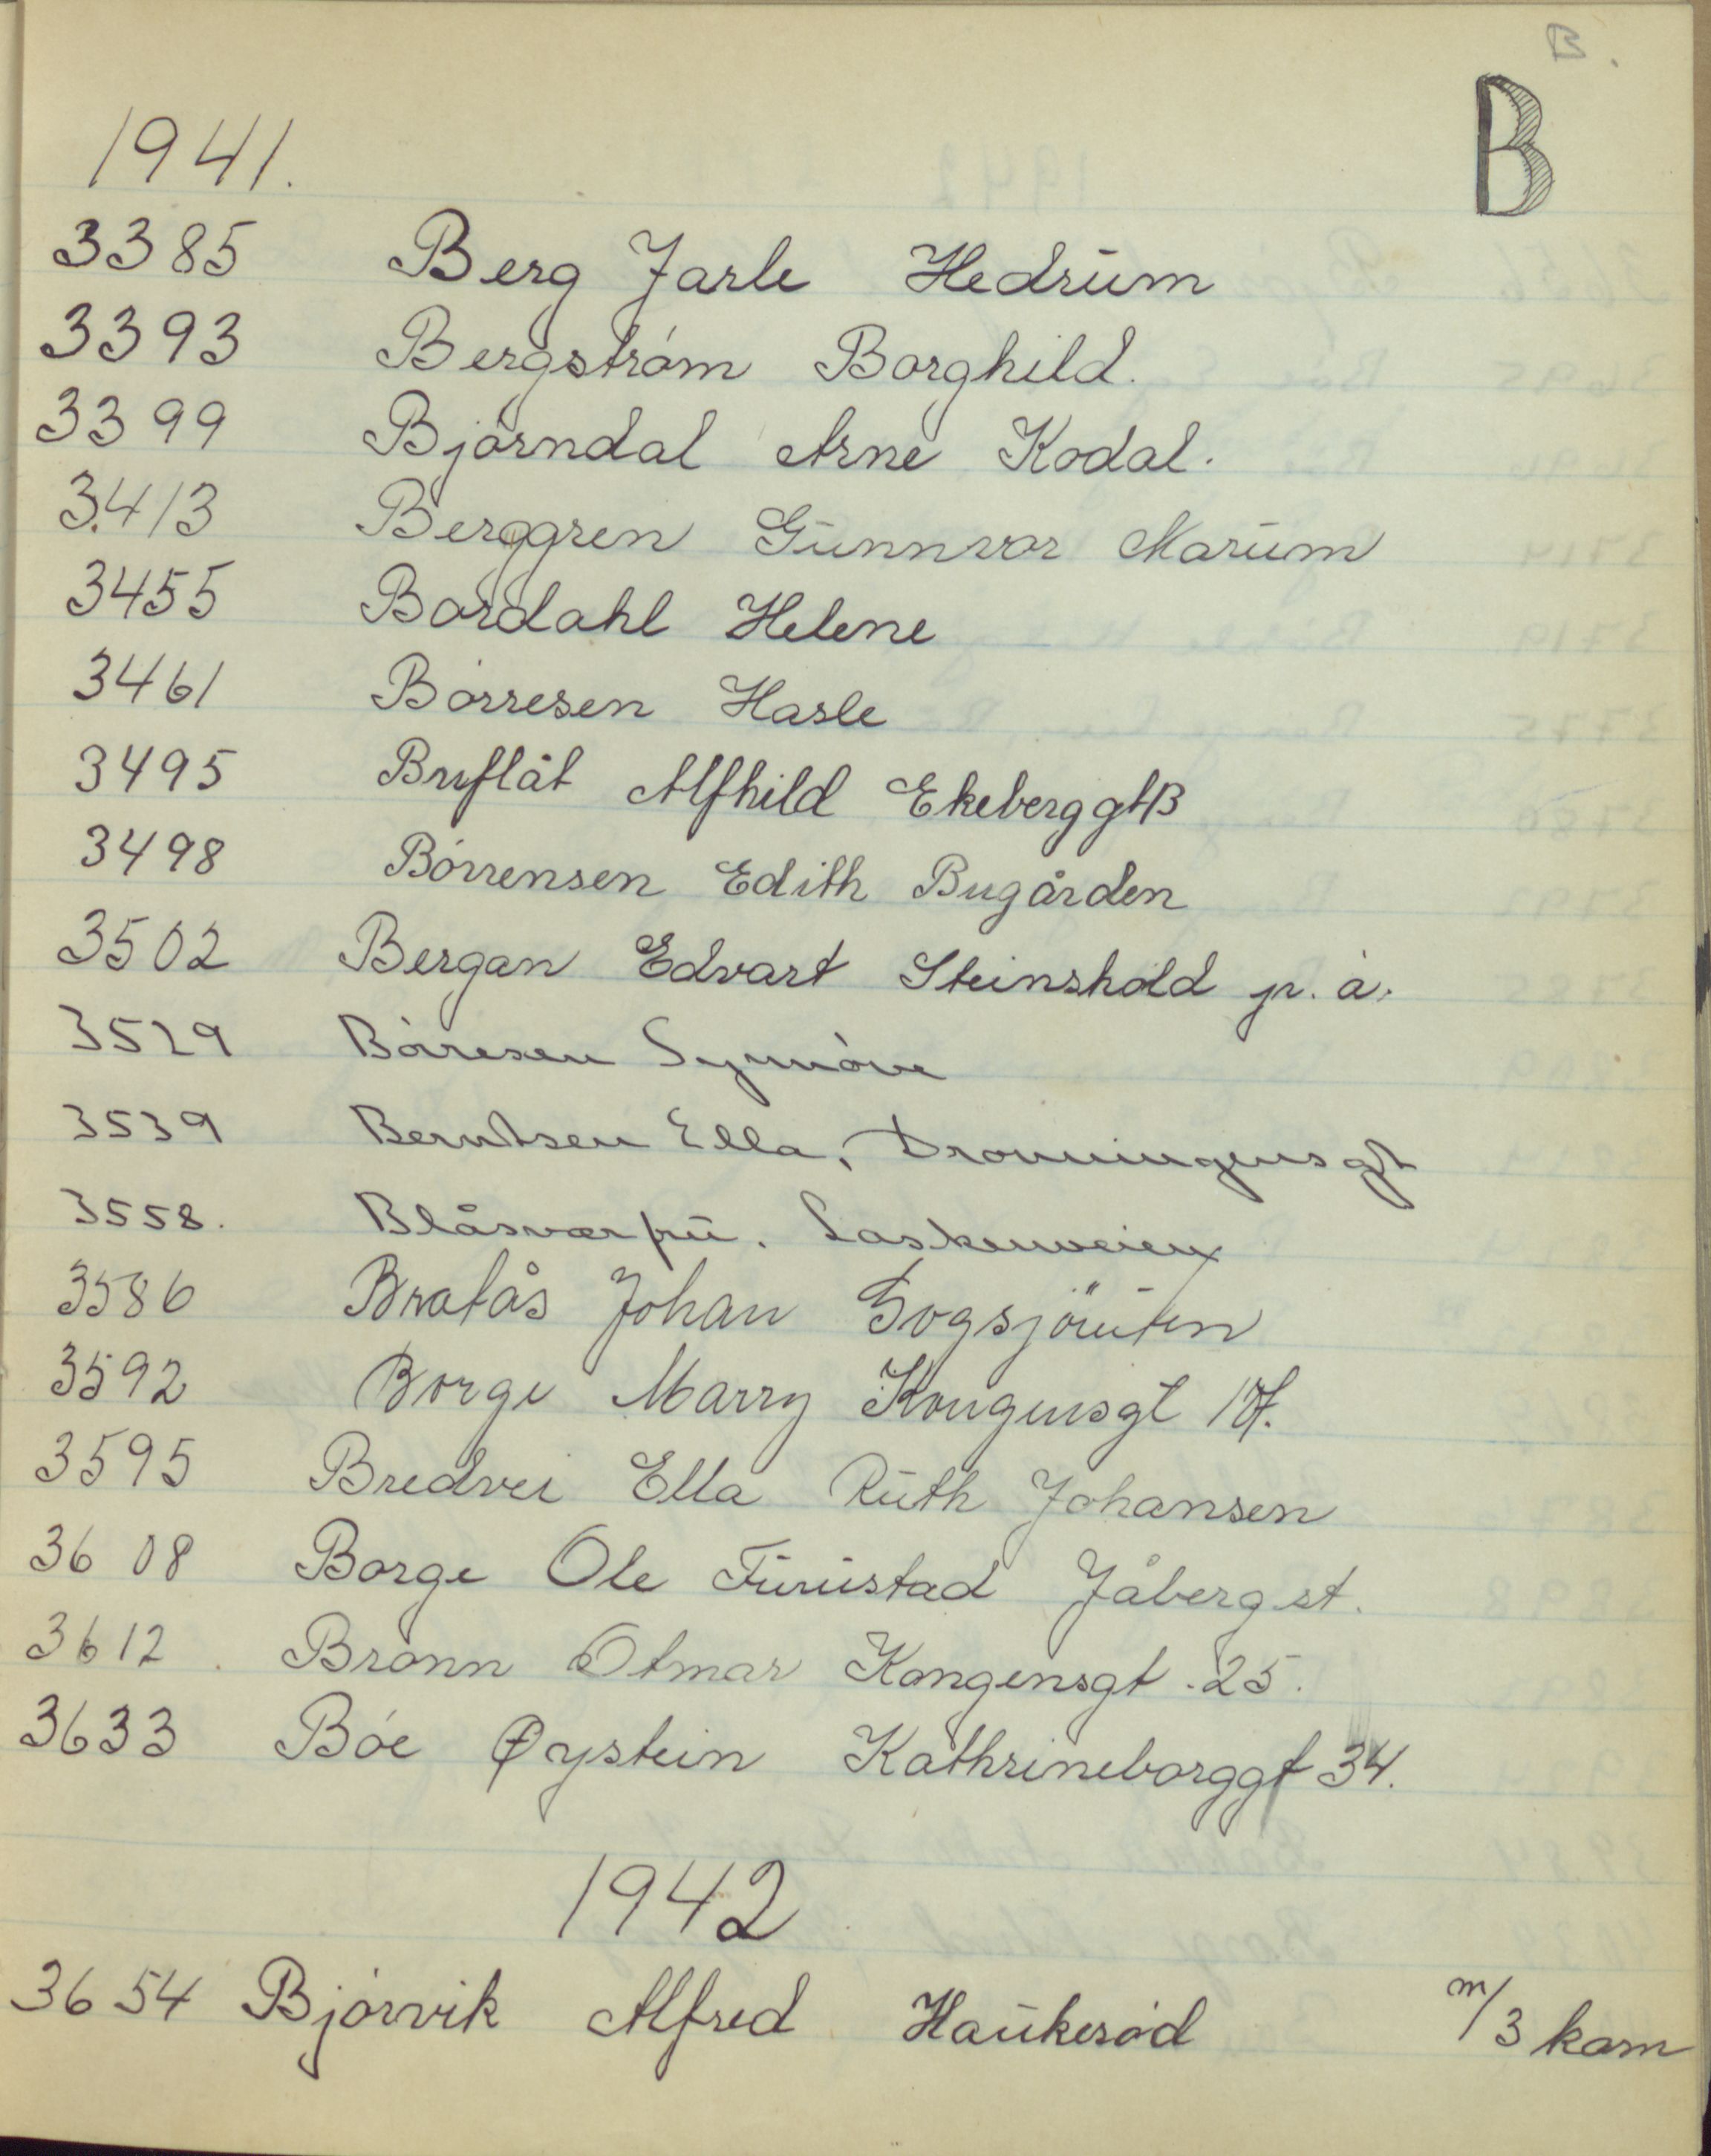 B.
B
1941.
3385 Berg Jarle Hedrum
3393 Bergstróm Borghild.
3399 Bjórndal Arne Kodal.
3413 Berggren Gunnvor Marum
3455 Bordahl Helene
3461 Bórresen Hasle
3495 Bruflåt Alfhild Ekeberggt 13
3498 Bórrensen Edith Bugården
3502 Bergan Edvart Steinshold pr. a.
3529 Bórresen Synnóve
3539 Berntsen Ella, Dronningensgt
3558. Blåsvær fru. Laskenveien
3586 Bratås Johan
3592 Borge Marry Kongensgt 17.
3595 Bredvei Ella Ruth Johansen
3608 Borge Ole Furustad Jåberg st.
3612 Brónn Otmar Kongensgt. 25.
3633 Bóe Øystein Kathrineborggt 34.
1942
3654 Bjórvik Alfred Haukeród m/3 kam